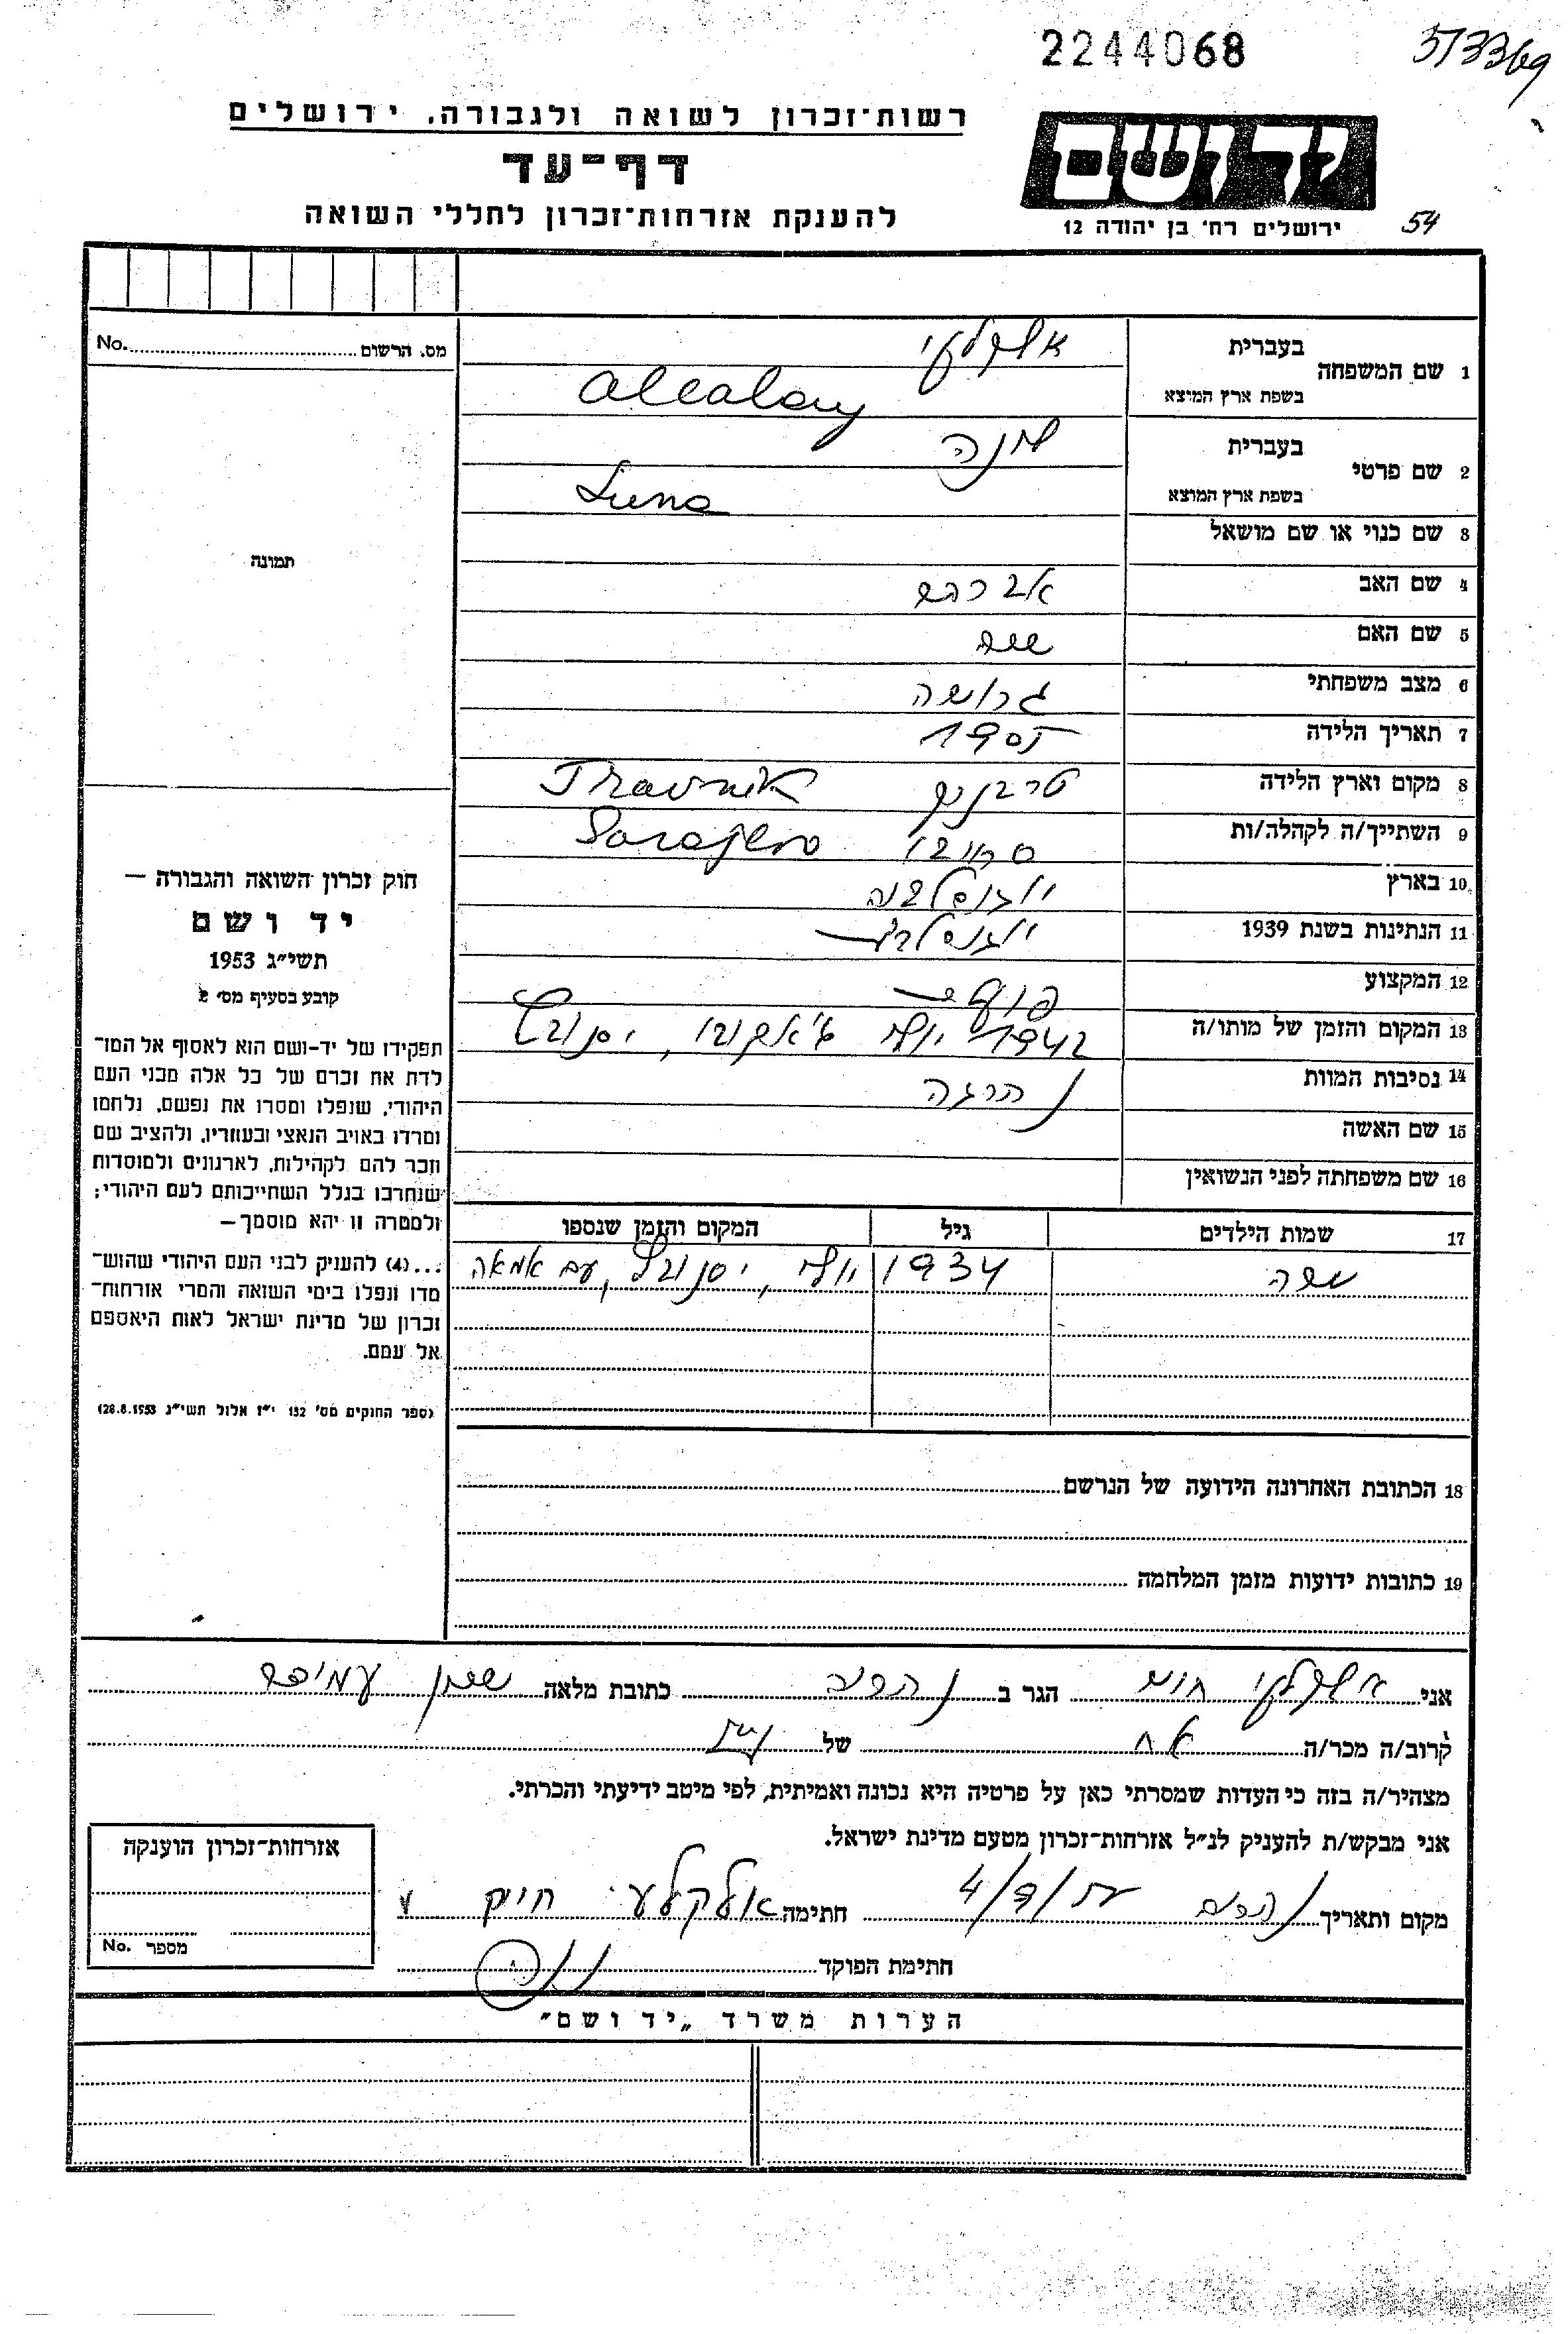 2244068
573369
רשות־זכרון לשואה ולגבורה, ירושלים
דף־עד
להענקת אזרחות־זכרון לחללי השואה
ידושם
ירושלים רח' בן יהודה 12
54
מס. הרשום No.
תמונה
1 שם המשפחה בעברית אלקלעי
בשפת ארץ המוצא Alcalay
2 שם פרטי בעברית לונה
בשפת ארץ המוצא Luna
3 שם כנוי או שם מושאל
4 שם האב אברהם
5 שם האם שרה
6 מצב משפחתי גרושה
7 תאריך הלידה 1905
8 מקום וארץ הלידה טרבניק Travnik
9 השתייך/ה לקהלה/ות סריבו Sarajevo
10 בארץ יוגוסלביה
11 הנתינות בשנת 1939
12 המקצוע
13 המקום והזמן של מותו/ה 1942
14 נסיבות המוות נהרגה
15 שם האשה
16 שם משפחתה לפני הנשואין
17 שמות הילדים גיל המקום והזמן שנספו
שרה 1934 עם אמאה
18 הכתובת האחרונה הידועה של הנרשם
19 כתובות ידועות מזמן המלחמה
חוק זכרון השואה והגבורה —
יד ושם
תשי״ג 1953
קובע בסעיף מס׳ 2
תפקידו של יד-ושם הוא לאסוף אל המו־
לדת את זכרם של כל אלה מבני העם
היהודי, שנפלו ומסרו את נפשם, נלחמו
ומרדו באויב הנאצי ובעוזריו, ולהציב שם
וזכר להם לקהילות, לארגונים ולמוסדות
שנחרבו בגלל השתייכותם לעם היהודי;
ולמטרה זו יהא מוסמך —
...(4) להעניק לבני העם היהודי שהוש־
מדו ונפלו בימי השואה והמרי אזרחות־
זכרון של מדינת ישראל לאות היאספם
אל עמם.
(ספר החוקים מס׳ 132 י״ז אלול תשי״ג 28.8.1953)
אני אלקלעי חיים הגר ב נהריה כתובת מלאה שכון עמידר
לקרוב/ה מכר/ה אח של
מצהיר/ה בזה כי העדות שמסרתי כאן על פרטיה היא נכונה ואמיתית, לפי מיטב ידיעתי והכרתי.
אני מבקש/ת להעניק לנ״ל אזרחות־זכרון מטעם מדינת ישראל.
מקום ותאריך חתימה אלקלעי חיים
חתימת הפוקד
אזרחות־זכרון הוענקה
מספר No.
הערות משרד „יד ושם״